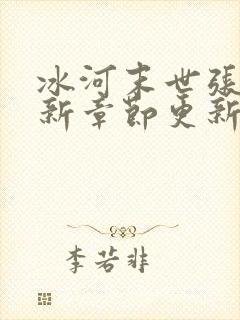 冰河末世張
新章節更新
李若非